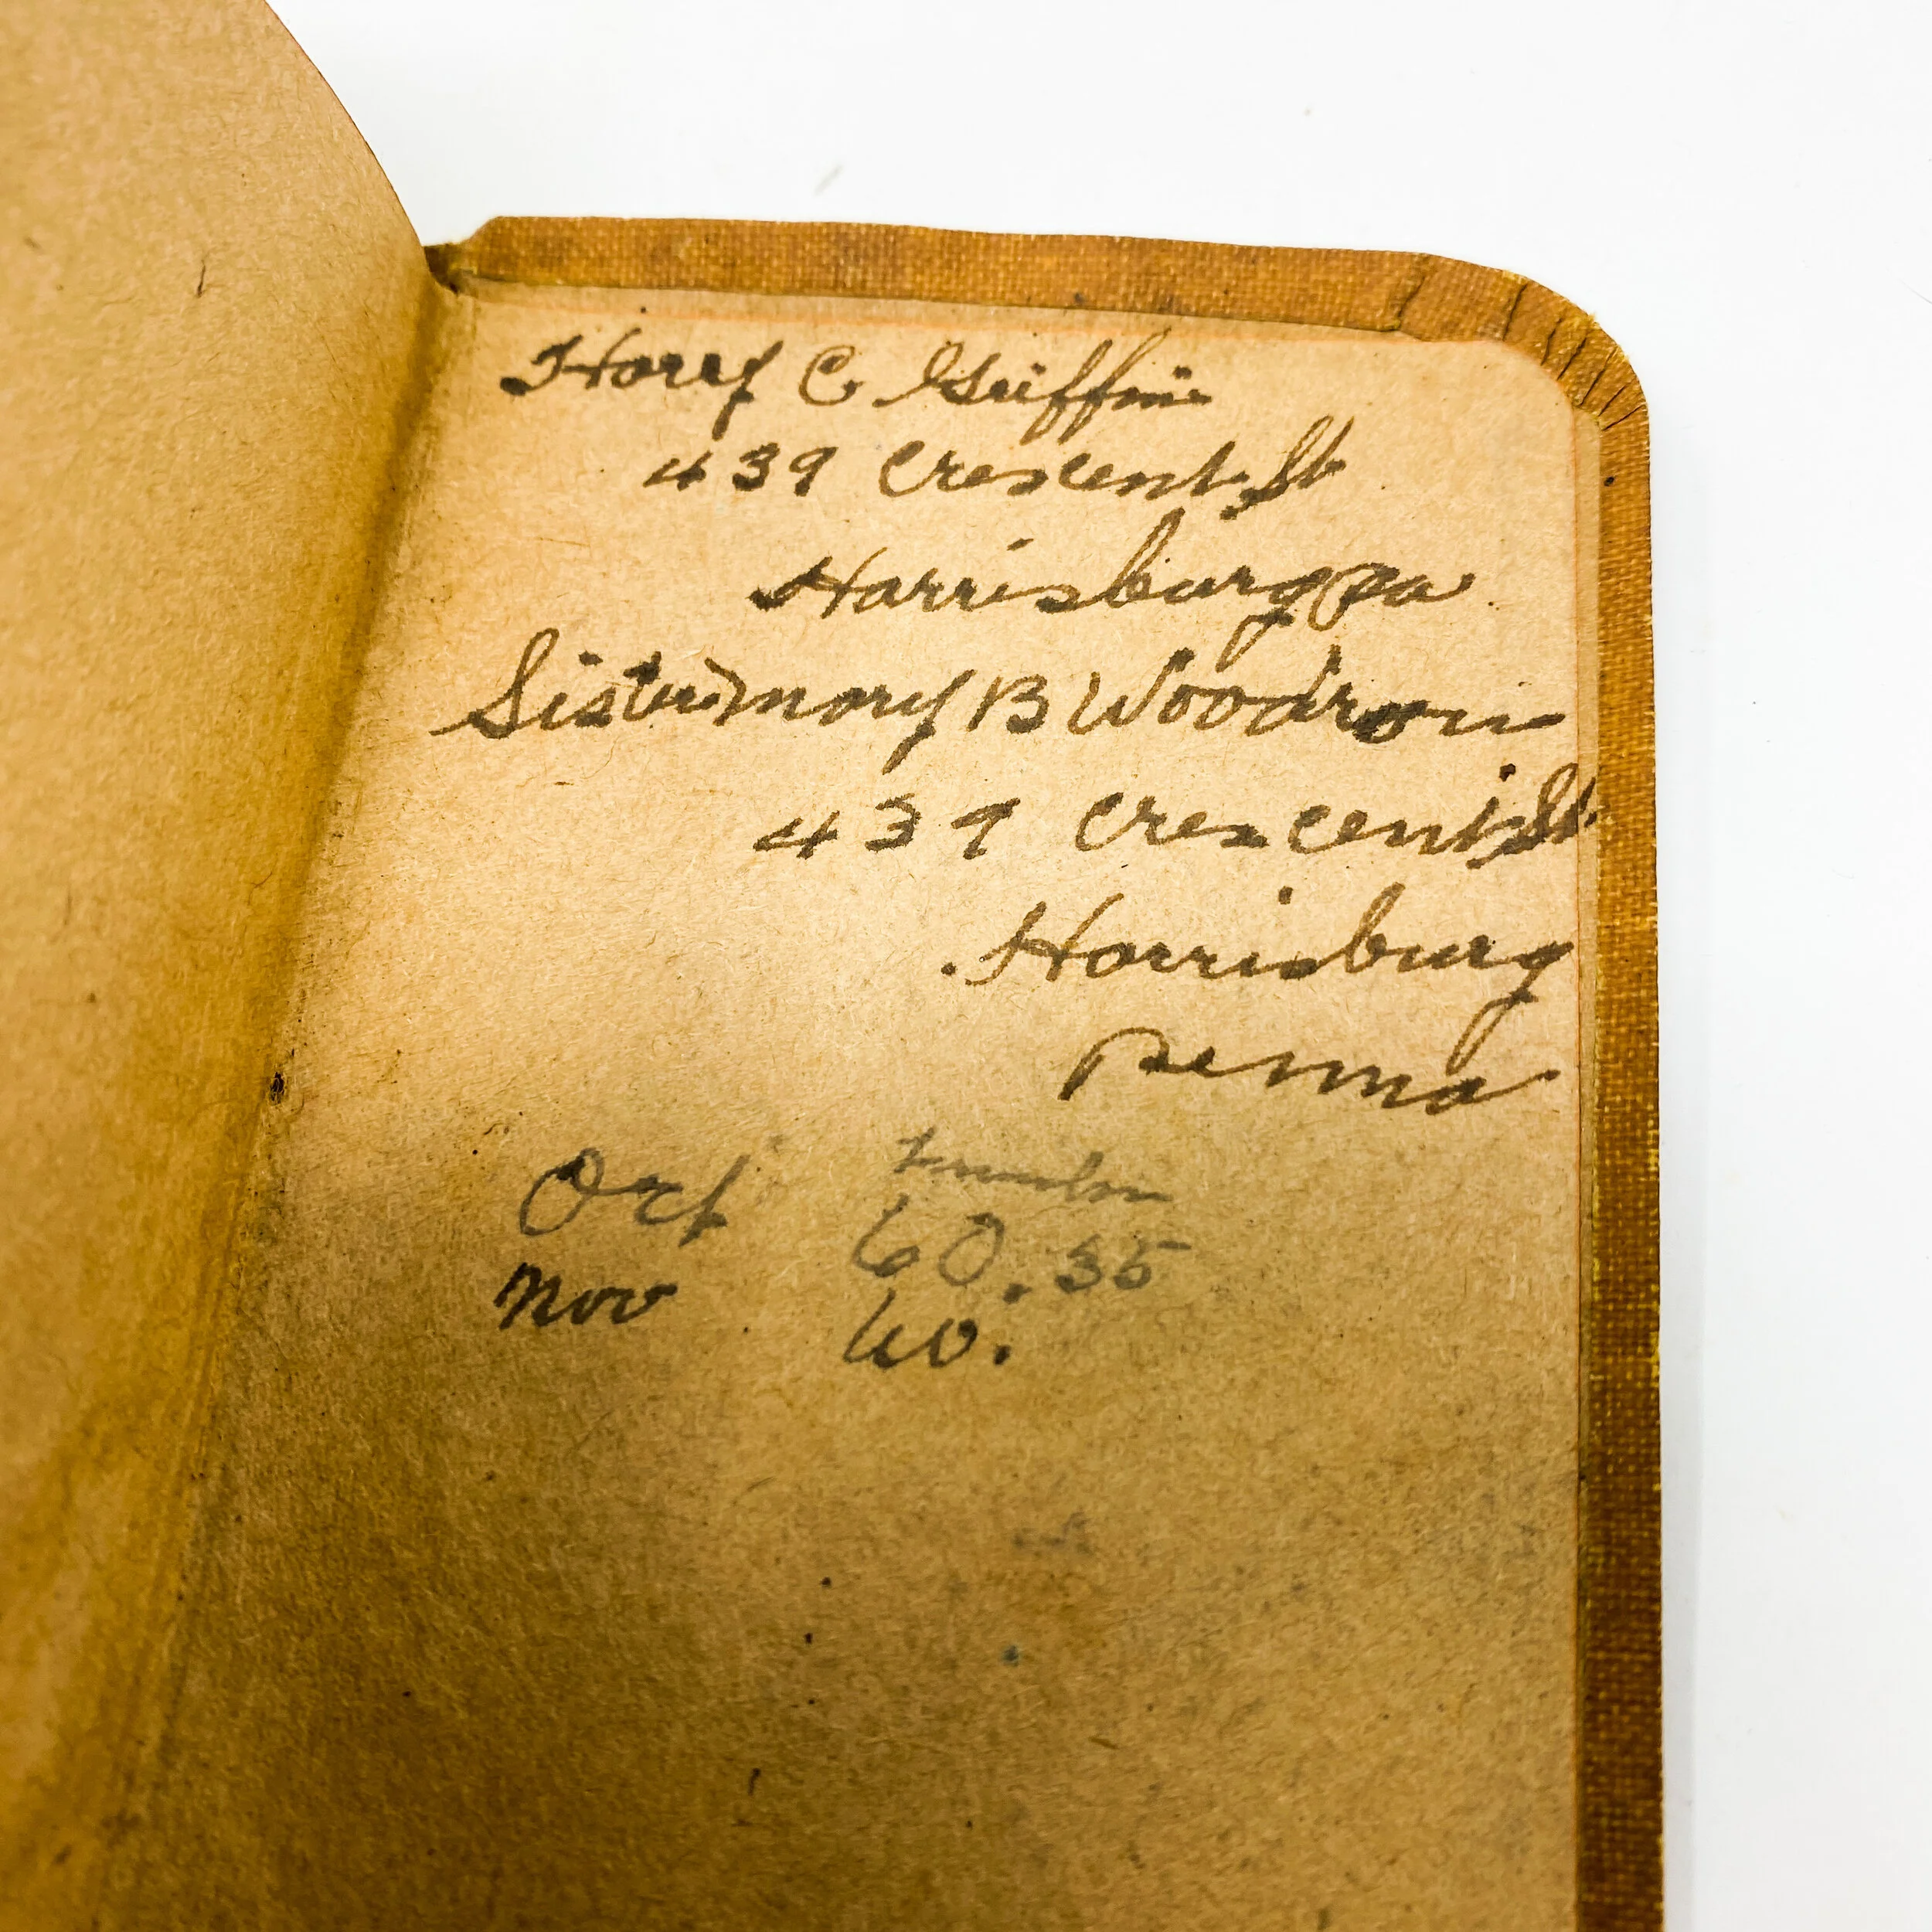 Harry C Griffin
439 Crescent St
Harrisburg Pa
Sister) Mary B Woodrow
439 Crescent St.
Harrisburg
Penna
Oct 60.35
Nov 60.